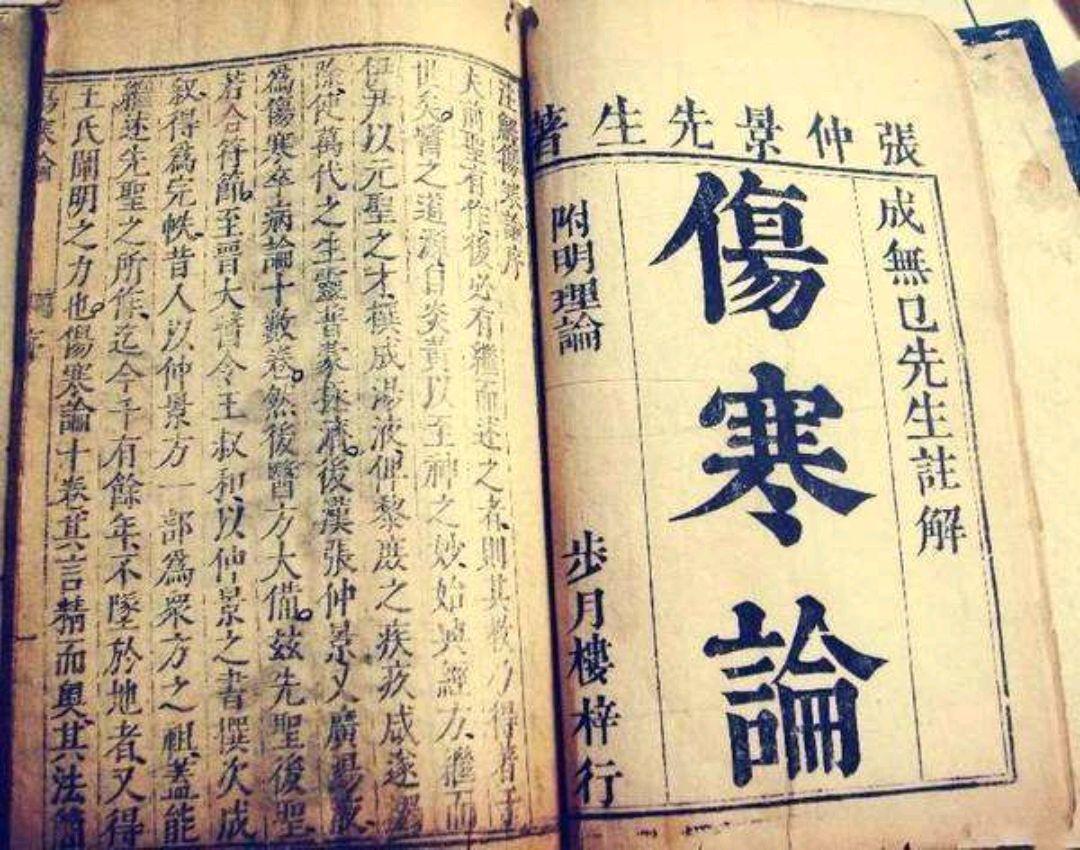 張仲景先生著
成無已先生註解
傷寒論
附明理論
步月樓梓行
註解傷寒論序
夫前聖有作後必有繼而述之者、則其教乃得著于
世矣。醫之道源自炎黃以至神之妙始興經方、繼而
伊尹以元聖之才、撰成湯液、俾黎庶之疾疚咸遂蠲
除、使萬代之生靈普蒙拯濟。後漢張仲景又廣湯液
爲傷寒卒病論十數卷。然後醫方大備。茲先聖後聖
若合符節。至晉大醫令王叔和以仲景之書撰次成
叙、得爲完帙、昔人以仲景方一部爲眾方之祖、蓋能
繼述先聖之所作、迄今千有餘年、不墜於地者、又得
王氏闡明之力也。傷寒論十卷、其言精而奧、其法簡
傷寒論